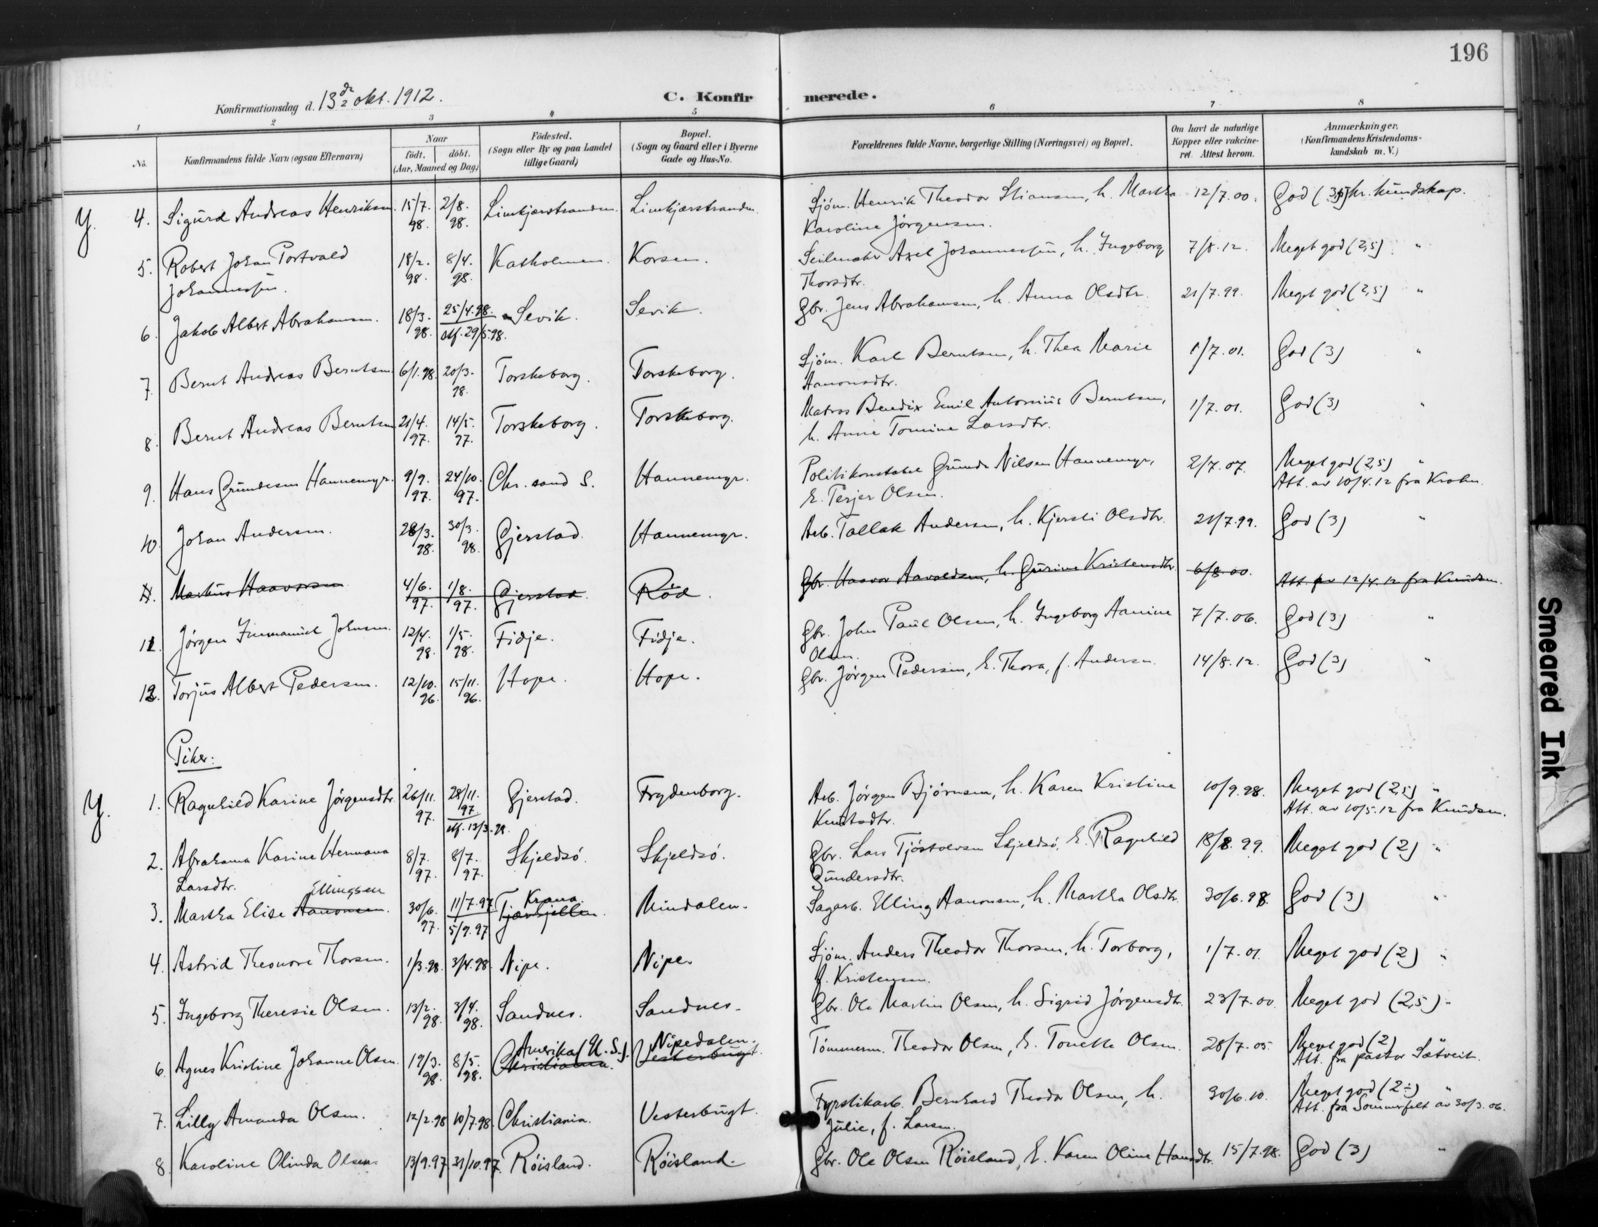 196
Konfirmationsdag d. 13de okt. 1912.
C. Konfirmerede.
1 2 3 4 5 6 7 8
No.
Konfirmandens fulde Navn (ogsaa Efternavn)
Naar
født. døbt.
(Aar, Maaned og Dag)
Fødested.
(Sogn eller By og paa Landet
tillige Gaard)
Bopæl.
(Sogn og Gaard eller i Byerne
Gade og Hus-No.
Forældrenes fulde Navne, borgerlige Stilling (Næringsvei) og Bopæl.
Om havt de naturlige
Kopper eller vaccine-
ret. Attest herom.
Anmærkninger.
(Konfirmandens Kristendoms-
kundskab m. V.)
4. Sigurd Andreas Henriksen 15/7. 98. 2/8. 98. Sjøm. Henrik Theodor h. Martha 12/7.00. God (3) kr. kundskap.
Karoline Jørgensen.
5. Robert Johan Torvald 18/2. 98. 8/4. 98. Katholmen Korsen. Seilmaker Axel Johannessen, h. Ingeborg 7/8.12. Meget god (2,5) "
Johannessen. Thorsdtr.
6. Jakob Albert Abrahamsen. 18/3. 98. 25/4.98. 29/5.98. Sevik. Sevik. Gbr. Jens Abrahamsen, h. Anna Olsdtr. 21/7.99. Meget god (2,5) "
7. Bernt Andreas Berntsen 6/1.98. 20/3. 98. Torskeborg. Torskeborg. Sjøm. Karl Berntsen, h. Thea Marie 1/7.01. God (3) "
Aanonsdtr.
8. Bernt Andreas Berntsen 21/4. 97. 14/5. 97. Torskeborg. Torskeborg. Matros Bendix Emil Antonius Berntsen, 1/7.01. God (3) "
h. Anne Tomine Larsdtr.
9. Hans Gundersen Hannemyr. 9/9. 97. 24/10. 97. Chr.sand S. Hannemyr. Politikonstabel Gunder Nilsen Hannemyr, 2/7.07. Meget god (2,5) "
E. Terjer Olsen. Att. av 10/4.12 fra Krohn.
10. Johan Andersen. 28/3. 98. 30/3. 98. Gjerstad. Hannemyr. Arb. Tallak Andersen, h. Kjersti Olsdtr. 21/7.99. God (3) "
Markus Haavorsen 4/6. 97. 1/8. 97. Gjerstad. Rød. Gbr. Haavor Aavoldsen, h. Gurine Kristensdtr. 6/8.00. Att. av 12/4.12 fra Knudsen.
11. Jørgen Immanuel Johnsen 12/4. 98. 1/5. 98. Fidje. Fidje. Gbr. John Paul Olsen, h. Ingeborg Aanine 7/7.06. God (3) "
Olsen.
12. Torjus Albert Pedersen. 12/10. 96. 15/11. 96. Hope. Hope. Gbr. Jørgen Pedersen, E. Thora, f. Andersen. 14/8.12. God (3) "
Piker:
1. Ragnhild Karine Jørgensdtr. 26/11. 97. 28/11. 97 Gjerstad. Frydenborg. Arb. Jørgen Bjørnsen, h. Karen Kristine 10/9.98. Meget god (2,5) "
Knutsdtr. Att. av 10/5.12 fra Knudsen.
2. Abrahama Karine Hermana 8/7. 97. 8/7. 97. Skjeldsø. Skjeldsø. Gbr. Lars Tjøstolvsen Skjeldsø, E. Ragnhild 18/8.99. Meget god (2) "
Larsdtr. Gundersdtr.
Ellingsen
3. Martha Elise Aanonsen. 30/6. 97. 11/7.97 5/9.97 Krana Mindalen. Sagarb. Elling Aanonsen, h. Martha Olsdtr. 30/6.98. God (3) "
4. Astrid Theonore Thorsen. 1/3.98. 3/4.98. Nipe. Nipe. Sjøm. Anders Theodor Thorsen, h. Torborg, 1/7.01. Meget god (2) "
f. Kristensen.
5. Ingeborg Theresie Olsen. 13/2. 98. 3/4. 98. Sandnes. Sandnes. Gbr. Ole Martin Olsen, h. Sigrid Jørgensdtr. 23/7.00. Meget god (2,5) "
Amerika (U.S.). Nipedalen.
6. Agnes Kristine Johanne Olsen. 19/3. 98. 8/5. 98. Christiania. Vesterbugt. Tømmerm. Theodor Olsen, E. Tonette Olsen. 28/7.05. Meget god (2)
Att. fra pastor Sætveit.
7. Lilly Amanda Olsen. 12/2.98 10/7.98 Christiania. Vesterbugt. Fyrstikarb. Bernhard Theodor Olsen, h. 30/6.10. Meget god (2÷) "
Julie, f. Larsen. Att. fra Sommerfelt av 30/3.06.
8. Karoline Olinda Olsen 13/9.97 21/10.97. Røisland. Røisland. Gbr. Ole Olsen Røisland, E. Karen Oline Hansdtr. 15/7.98. God (3) "
Smeared Ink